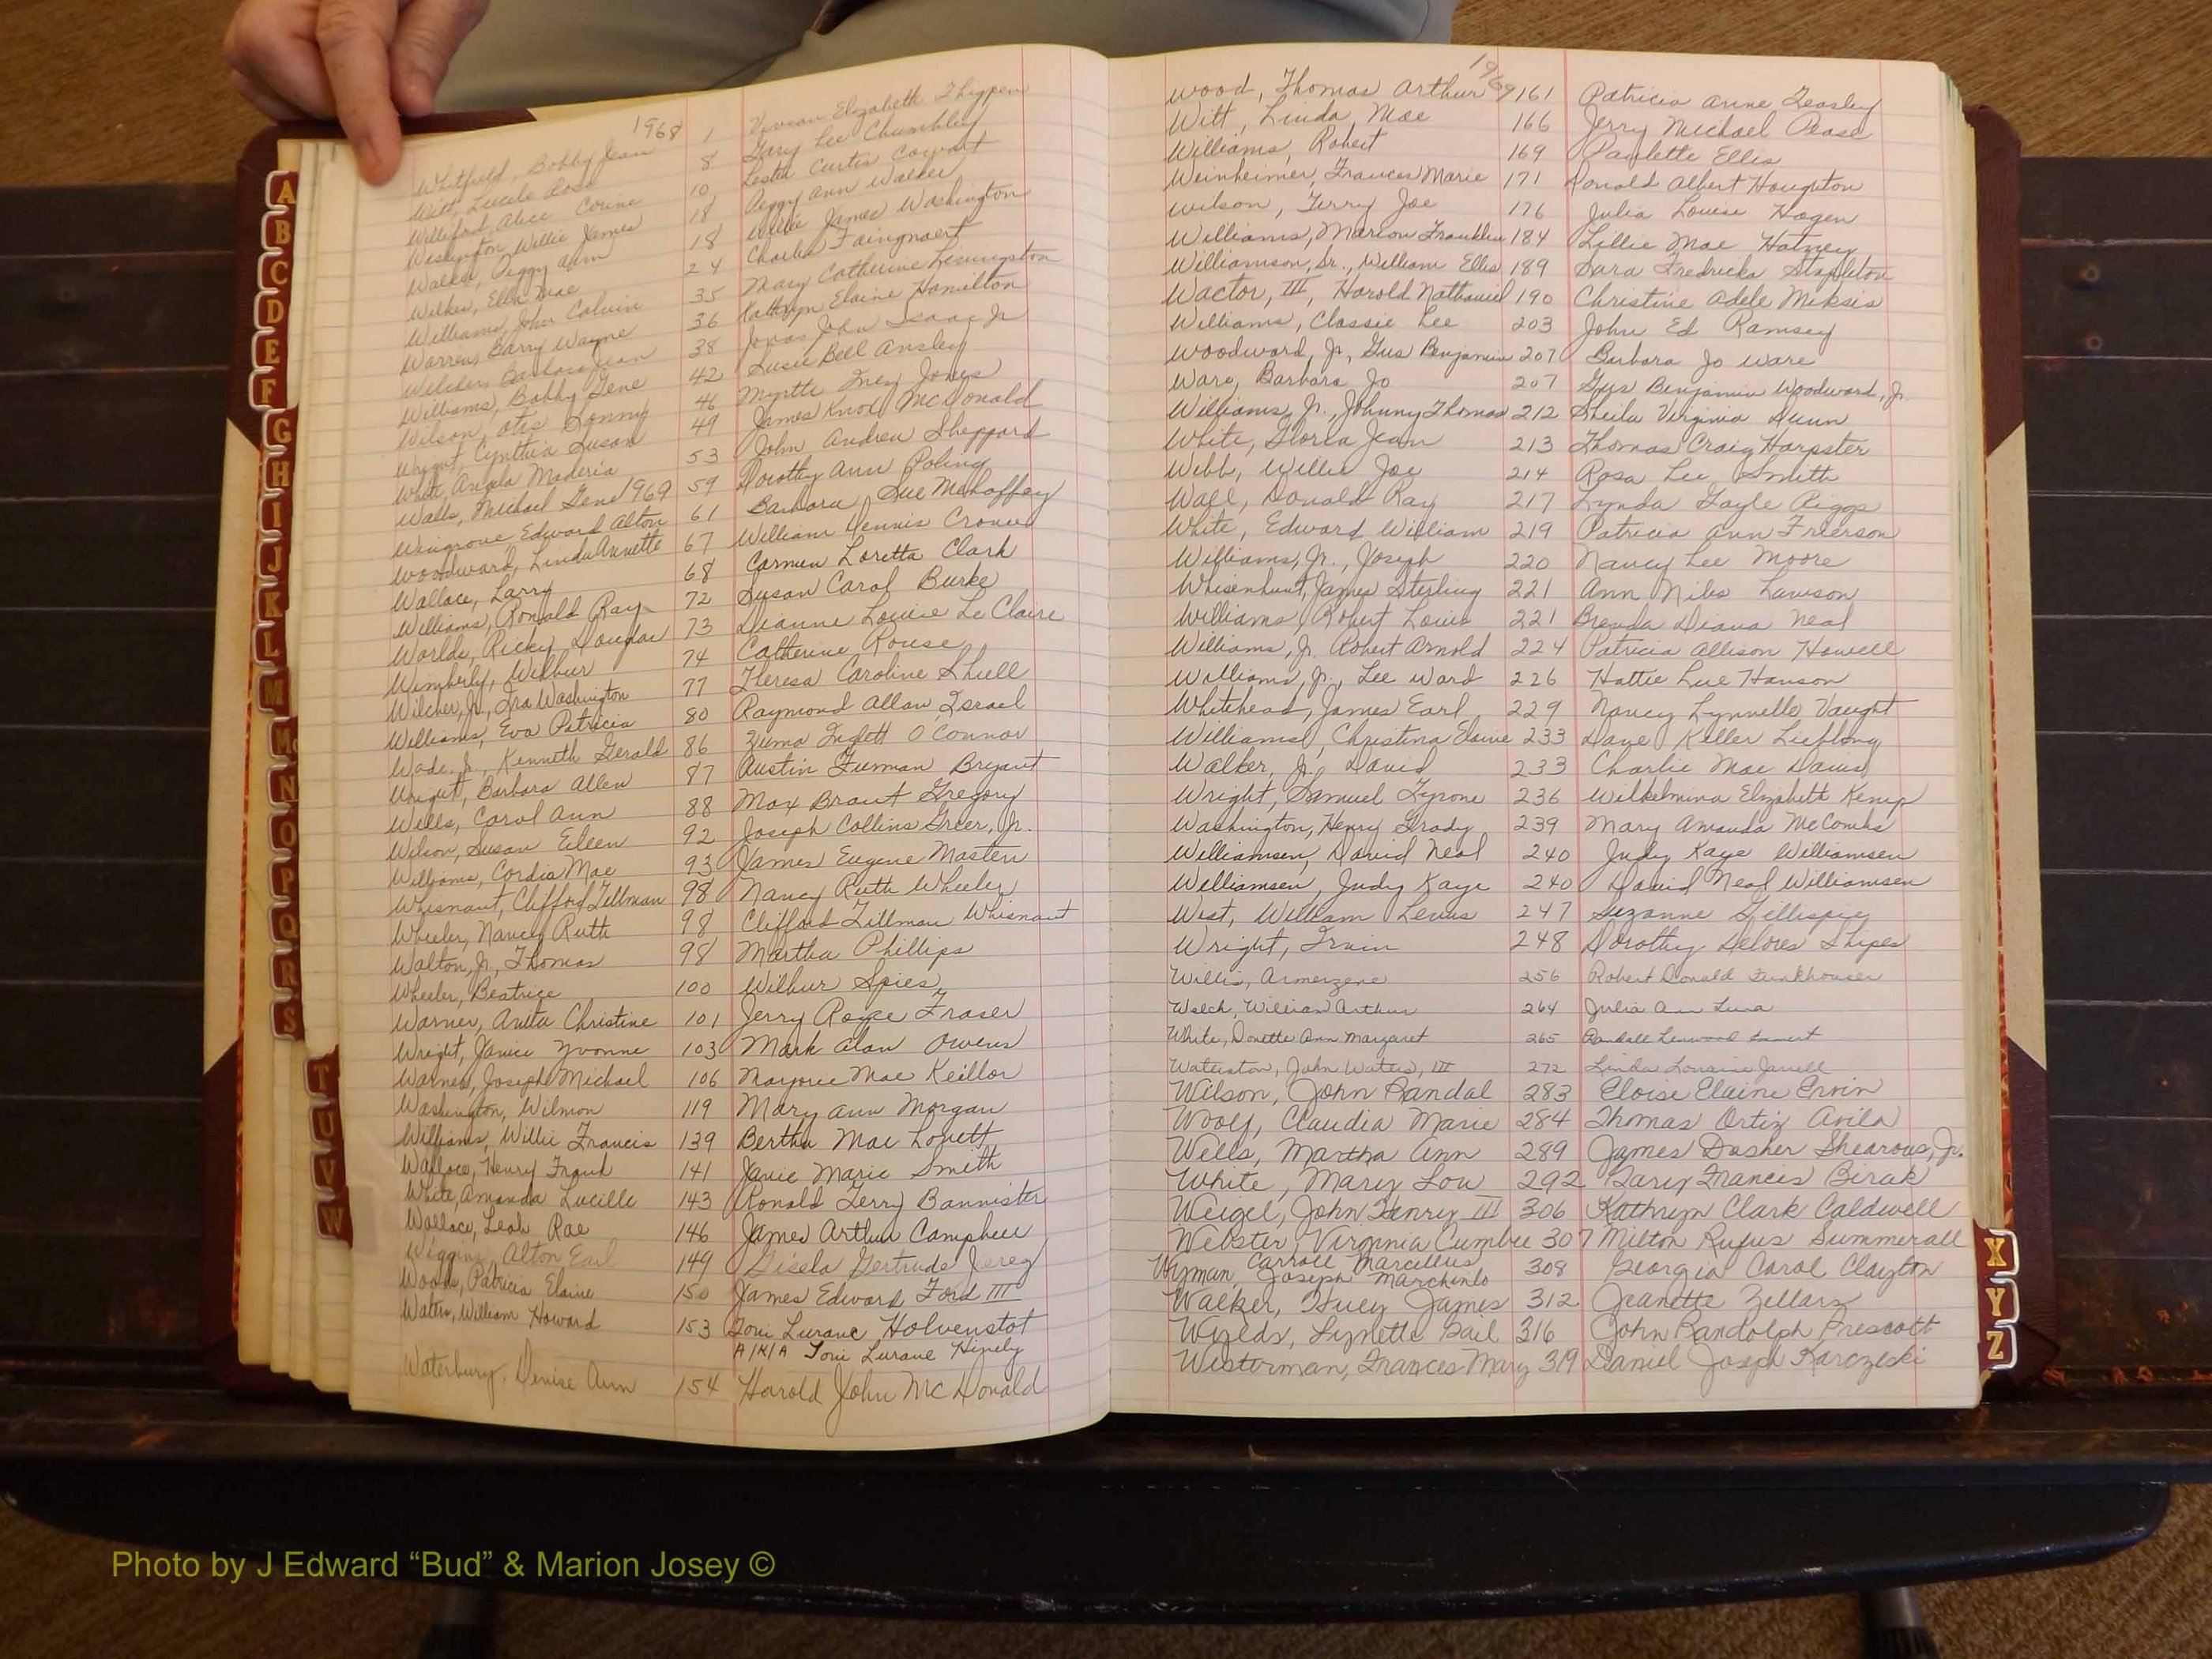 1968
Whitfield, Bobby Jean 1 Vivian Elizabeth Thigpen
Witt, Lucile Rose 8 Gary Lee Chumbley
Williford, Alice Corine 10 Lester Curtis Cowart
Washington, Willie James 18 Peggy Ann Walker
Walker, Peggy Ann 18 Willie James Washington
Wilkes, Ella Mae 24 Charles
Williams, John Calvin 35 Mary Catherine
Warren, Barry Wayne 36 Kathryn Elaine Hamilton
Barbara Jean 38 Jonas John Isaac Jr
Williams, Bobby Gene 42 Susie Bell Ansley
Wilson, Otis Donny 46 Myrtle Inez Jones
Wright, Cynthia Susan 49 James Knox McDonald
White, Angela Maderia 53 John Andrew Sheppard
Walls, Michael Gene 1969 59 Dorothy Ann Poling
Wingrove Edward Alton 61 Barbara Sue Mehaffey
Woodward, Linda Annette 67 William Dennis
Wallace, Larry 68 Carmen Loretta Clark
Williams, Ronald Ray 72 Susan Carol Burke
Worlds, Ricky 73 Dianne Louise Le Claire
Wimberly, Wilbur 74 Catherine Rouse
Wilcher, Jr., Ira Washington 77 Theresa Caroline Shull
Williams, Eva Patricia 80 Raymond Allan Israel
Wade, Jr., Kenneth Gerald 86 Zuma Inglett O'Connor
Wright, Barbara Allen 87 Austin Furman Bryant
Wells, Carol Ann 88 Max Brant Gregory
Wilson, Susan Eileen 92 Joseph Collins Greer, Jr.
Williams, Cordia Mae 93 James Eugene Masten
Whisnant, Clifford Tillman 98 Nancy Ruth Wheeler
Wheeler, Nancy Ruth 98 Clifford Tillman Whisnant
Walton, Jr., Thomas 98 Martha Phillips
Wheeler, Beatrice 100 Wilbur Spies
Warner, Anita Christine 101 Jerry Royce Fraser
Wright, Janice Yvonne 103 Mark Alan Owens
Warner, Joseph Michael 106 Marjorie Mae Keillor
Washington, Wilmon 119 Mary Ann Morgan
Williams, Willie Francis 139 Bertha Mae Lovett
Wallace, Henry Frank 141 Janie Marie Smith
White, Amanda Lucille 143 Ronald Terry Bannister
Wallace, Leah Rae 146 James Arthur Campbell
Wiggins, Alton Earl 149 Gisela Gertrude Jerez
Woods, Patricia Elaine 150 James Edward Ford III
Watts, William Howard 153 Toni Lurane Holvenstot
A/K/A Toni Lurane Hinely
Waterbury, Denise Ann 154 Harold John McDonald
1969
Wood, Thomas Arthur 161 Patricia Anne Teasley
Witt, Linda Mae 166 Jerry Michael Pease
Williams, Robert 169 Paulette Ellis
Weinheimer, Frances Marie 171 Ronald Albert Houghton
Wilson, Terry Joe 176 Julia Louise Hagen
Williams, Marion Franklin 184 Lillie Mae
Williamson, Sr., William Ellis 189 Sara Fredricka Stapleton
Wactor, III, Harold Nathaniel 190 Christine Adele Miksis
Williams, Classie Lee 203 John Ed Ramsey
Woodward, Jr., Gus Benjamin 207 Barbara Jo Ware
Ware, Barbara Jo 207 Gus Benjamin Woodward, Jr.
Williams, Jr., Johnny Thomas 212 Sheila Virginia Dunn
White, Gloria Jean 213 Thomas Craig Harpster
Webb, Willie Joe 214 Rosa Lee Smith
Wall, Donald Ray 217 Lynda Gayle Riggs
White, Edward William 219 Patricia Ann Frierson
Williams, Jr., Joseph 220 Nancy Lee Moore
Whisenhunt, James Sterling 221 Ann Niles Lawson
Williams, Robert Louis 221 Brenda Diana Neal
Williams, Jr. Robert Arnold 224 Patricia Allison Howell
Williams, Jr., Lee Ward 226 Hattie Lue Hanson
Whitehead, James Earl 229 Nancy Lynnelle Vaught
Williams, Christina Elaine 233 Dave Keller Liefbling
Walker, Jr., David 233 Charlie Mae Davis
Wright, Samuel Tyrone 236 Wilhelmina Elizabeth Kemp
Washington, Henry Grady 239 Mary Amanda McCombs
Williamsen, David Neal 240 Judy Kaye Williamsen
Williamsen, Judy Kaye 240 David Neal Williamsen
West, William Lewis 247 Suzanne Gillispie
Wright, Irvin 248 Dorothy Delores Shipes
Willis, Armerzene 256 Robert Donald Funkhouser
Welch, William Arthur 264 Julia Ann Luna
White, Donette Ann Margaret 265 Randall Linwood
Waterston, John Waters, III 272 Linda Lorraine Jarrell
Wilson, John Randal 283 Eloise Elaine Ervin
Woolf, Claudia Marie 284 Thomas Ortiz Avila
Wells, Martha Ann 289 James Dasher Shearous, Jr.
White, Mary Lou 292 Gary Francis Birak
Weigel, John Henry III 306 Kathryn Clark Caldwell
Webster, Virginia Cumbee 307 Milton Rufus Summerall
Wyman, Carroll Marcellus 308 Georgia Carol Clayton
Joseph Marchinlo
Walker, Huey James 312 Jeanette Zellars
Wylds, Lynette Gail 316 John Randolph Prescott
Westerman, Frances Mary 319 Daniel Joseph Karczeski
A
B
C
D
E
F
G
H
I
J
K
L
M
Mc
N
O
P
Q
R
S
T
U
V
W
X
Y
Z
Photo by J Edward “Bud” & Marion Josey ©